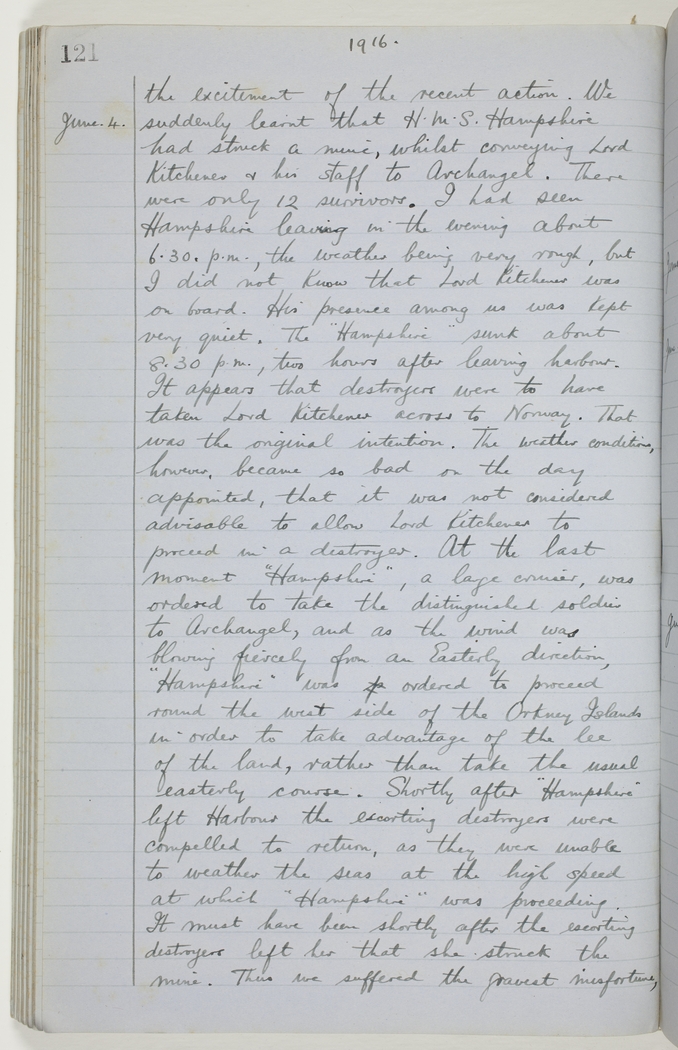 121
1916.
the excitement of the recent action. We
June. 4. suddenly learnt that H.M.S. Hampshire
had struck a mine, whilst conveying Lord
Kitchener & his staff to Archangel. There
were only 12 survivors. I had seen
Hampshire leaving in the evening about
6.30. p.m., the weather being very rough, but
I did not know that Lord Kitchener was
on board. His presence among us was kept
very quiet. The "Hampshire" sunk about
8.30 p.m., two hours after leaving harbour.
It appears that destroyers were to have
taken Lord Kitchener across to Norway. That
was the original intention. The weather conditions,
however, became so bad on the day
appointed, that it was not considered
advisable to allow Lord Kitchener to
proceed in a destroyer. At the last
moment "Hampshire", a large cruiser, was
ordered to take the distinguished soldier
to Archangel, and as the wind was
blowing fiercely from an Easterly direction,
"Hampshire" was ordered to proceed
round the west side of the Orkney Islands
in order to take advantage of the lee
of the land, rather than take the usual
easterly course. Shortly after "Hampshire"
left Harbour the escorting destroyers were
compelled to return, as they were unable
to weather the seas at the high speed
at which "Hampshire" was proceeding.
It must have been shortly after the escorting
destroyers left her that she struck the
mine. Thus we suffered the gravest misfortune,